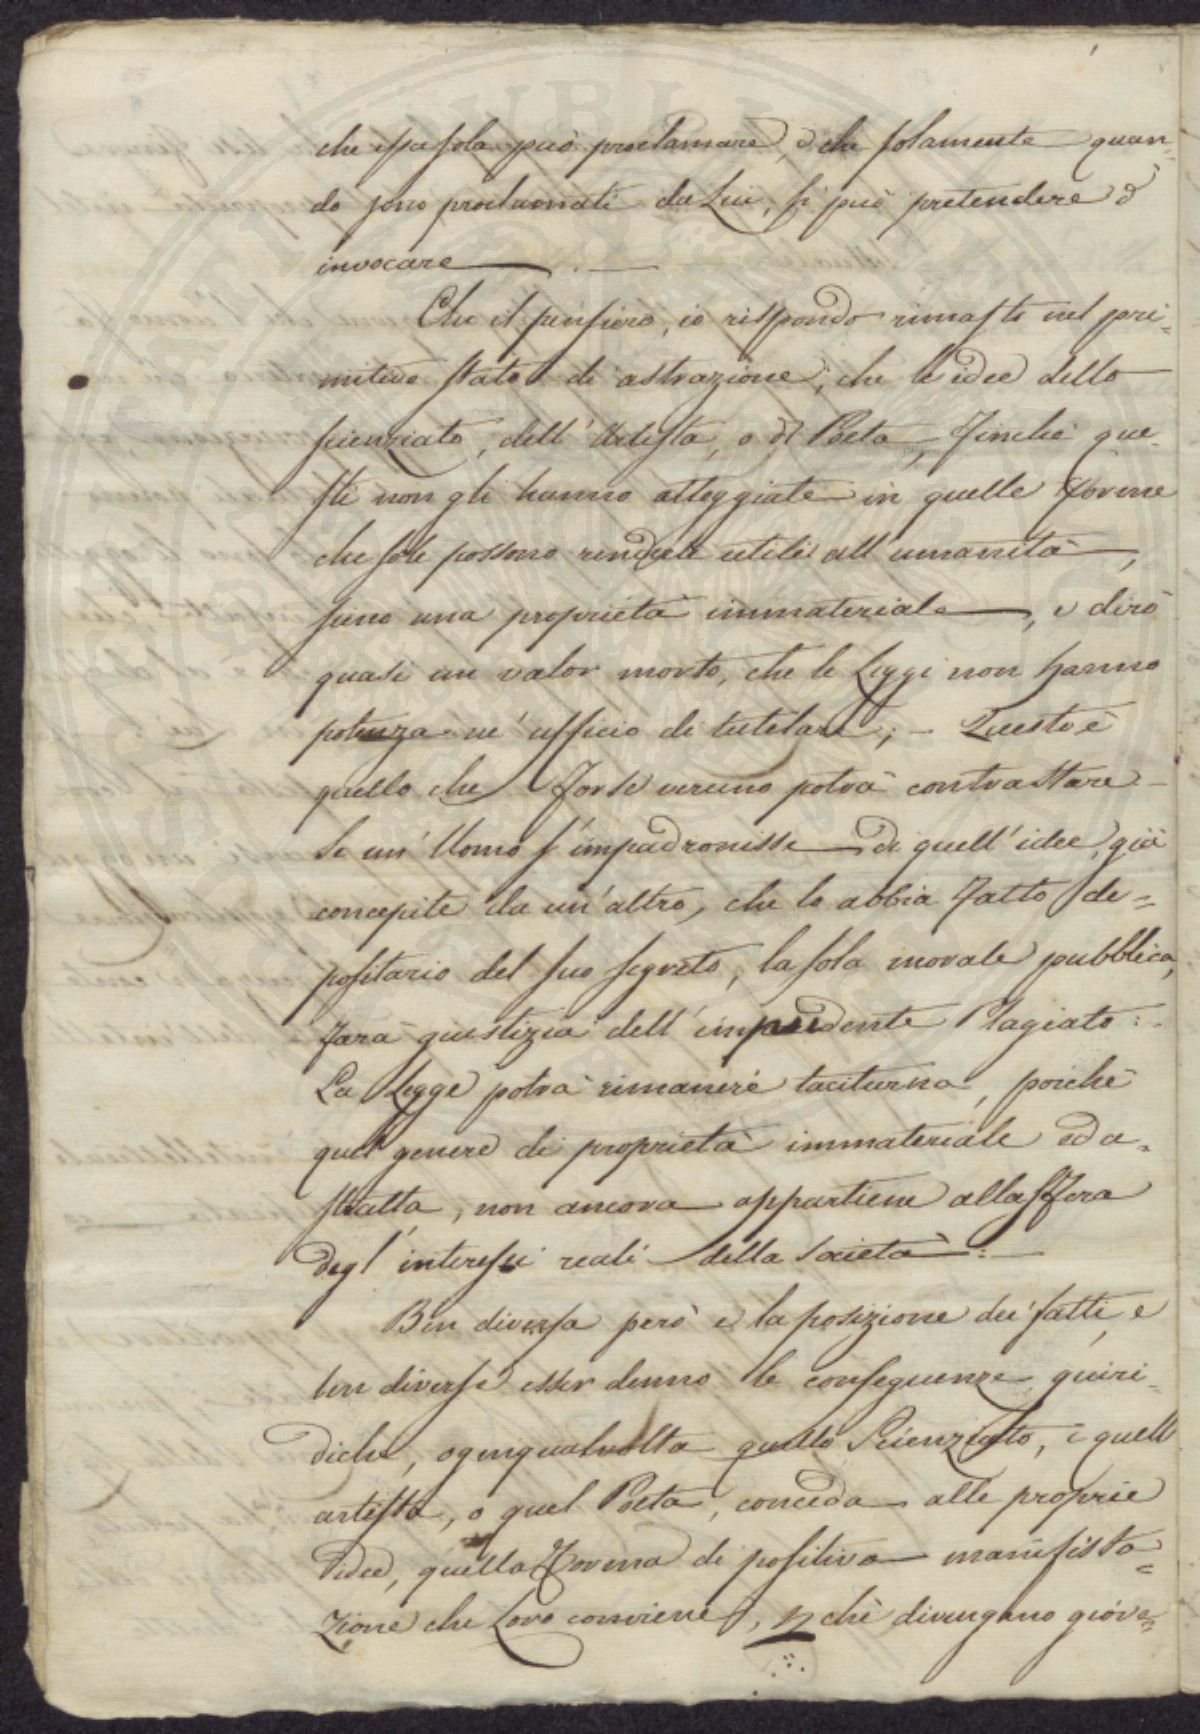 che essa sola può proclamare, e che solamente quan-
do sono proclamati da Lui, si può pretendere e
invocare
Che il pensiero, io rispondo rimasto nel pri-
mitivo stato di astrazione, che le idee dello
scienziato, dell'Artista, o dl Poeta, finchè que-
sti non gli hanno atteggiate in quelle forme
che sole possono renderle utili all'umanità,
sieno una proprietà immateriale, e dirò
quasi un valor morto, che le Leggi non hanno
potenza nè ufficio di tutelare; - Questo è
quello che forse veruno potrà contrastare -
Se un'Uomo s'impadronisse di quell'idee già
concepite da un'altro, che lo abbia fatto de=
positario del suo segreto, la sola morale pubblica,
farà giustizia dell'impudente Plagiato:
La Legge potrà rimanere taciturna, poichè
quel genere di proprietà immateriale ed a-
stratta, non ancora appartiene alla sfera
degl'interessi reali della Società:
Ben diversa però è la posizione dei fatti, e
ben diverse esser denno le conseguenze giuri-
diche, ogniqualvolta quello Scienziato, o quell
artista, o quel Poeta, conceda alle proprie
idee, quella forma di positiva manifesta=
zione che Loro conviene, pchè divengano giove=